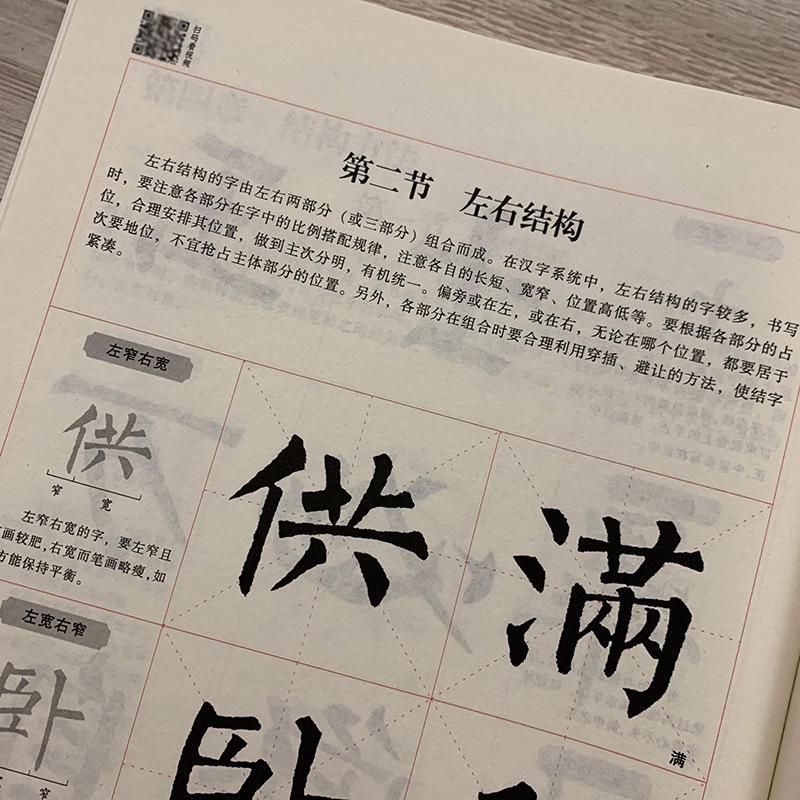 扫码看视频
第二节 左右结构
左右结构的字由左右两部分（或三部分）组合而成。在汉字系统中，左右结构的字较多，书写
时，要注意各部分在字中的比例搭配规律，注意各自的长短、宽窄、位置高低等。要根据各部分的占
位，合理安排其位置，做到主次分明，有机统一。偏旁或在左，或在右，无论在哪个位置，都要居于
次要地位，不宜抢占主体部分的位置。另外，各部分在组合时要合理利用穿插、避让的方法，使结字
紧凑。
左窄右宽
供
窄 宽
左窄右宽的字，要左窄且
画较肥，右宽而笔画略瘦，如
方能保持平衡。
供 滿
满
左宽右窄
卧
窄
卧